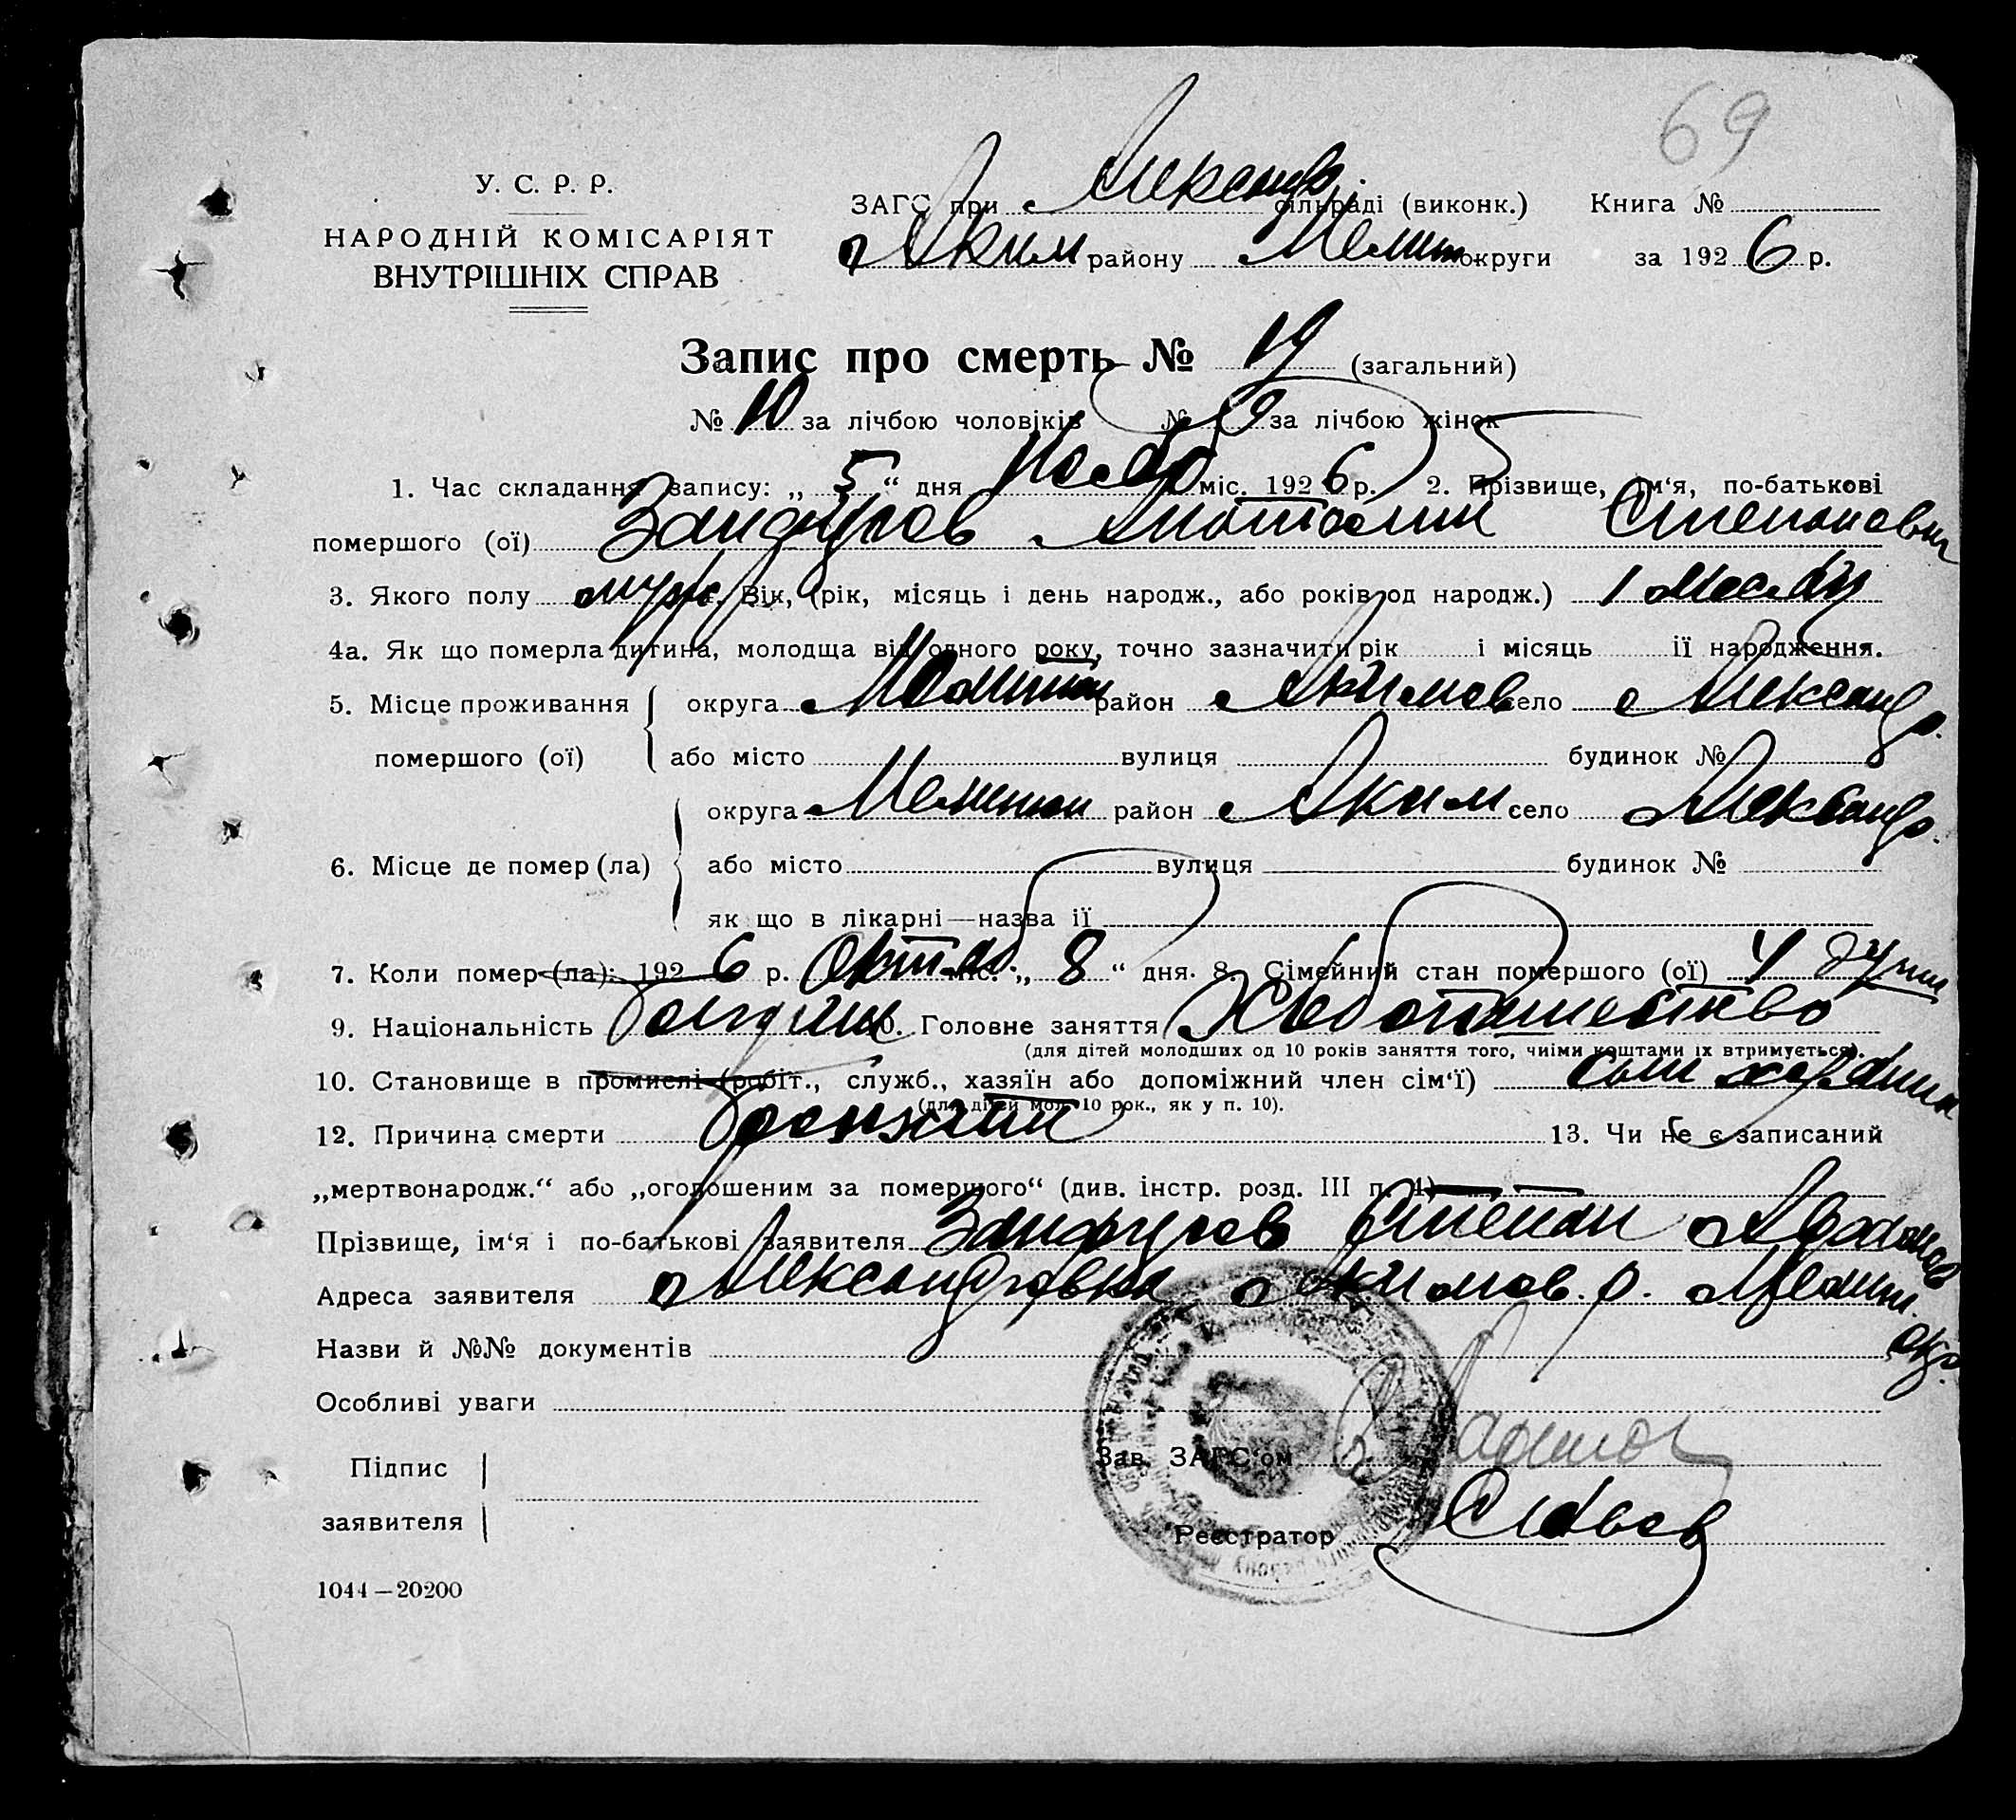 69
У. С. Р. Р.
НАРОДНІЙ КОМІСАРІЯТ
ВНУТРІШНІХ СПРАВ
ЗАГС при Александр. сільраді (виконк.) Книга №
Аким району Мелит округи за 1926 р.
Запис про смерть № 19 (загальний)
№ 10 за лічбою чоловіків № 9 за лічбою жінок
1. Час складання запису: „ 5 “ дня Нояб міс. 1926 р. 2. Прізвище, ім‘я, по-батькові
помершого (ої) Занфиров Анатолий Степанович
3. Якого полу муж. Вік, (рік, місяць і день народж., або років од народж.) 1 месяц
4а. Як що померла дитина, молодща від одного року, точно зазначити рік і місяць її народження.
5. Місце проживання округа Мелитоп район Акимов село Александр.
помершого (ої) або місто вулиця будинок №
округа Мелитоп район Аким село Александр.
6. Місце де помер (ла) або місто вулиця будинок №
як що в лікарні—назва її
7. Коли помер (ла): 1926 р. Октяб міс. „ 8 “ дня. 8. Сімейний стан помершого (ої) 4 души
9. Національність Болгарин 10. Головне заняття Хлебопашество
(для дітей молодших од 10 років заняття того, чиїми коштами їх втримується).
10. Становище в промислі (робіт., служб., хазяїн або допоміжний член сім‘ї) сын хозяина
(для дітей мол. 10 рок., як у п. 10).
12. Причина смерти 13. Чи не є записаний
„мертвонародж.“ або „оголошеним за помершого“ (див. інстр. розд. III п. 4) — —
Прізвище, ім‘я і по-батькові заявителя Занфиров Степан
Адреса заявителя Александровка Акимов. р. Мелит. окр.
Назви й №№ документів
Особливі уваги
Підпис
заявителя
Зав. ЗАГС‘ом
Реєстратор
1044—20200